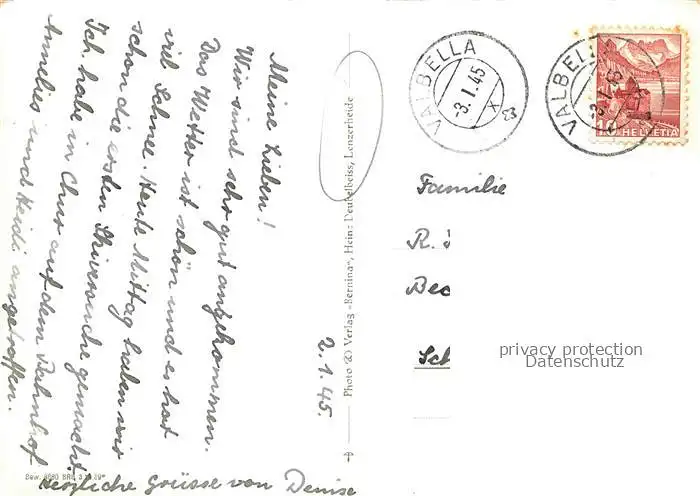 Meine Lieben!
Wir sind sehr gut angekommen.
Das Wetter ist schön und es hat
viel Schnee. Heute Mittag haben wir
schon die ersten Skiversuche gemacht.
Ich habe in Chur auf dem Bahnhof
Annelies und Heidi angetroffen.
Herzliche Grüsse von Denise
2.1.45.
Photo & Verlag «Bernina», Heinz Deubelbeiss, Lenzerheide
VALBELLA
-3.I.45
X
VALBELLA
-3.I.45
10 HELVETIA
Familie
R.
Bec
Sch
privacy protection
Datenschutz